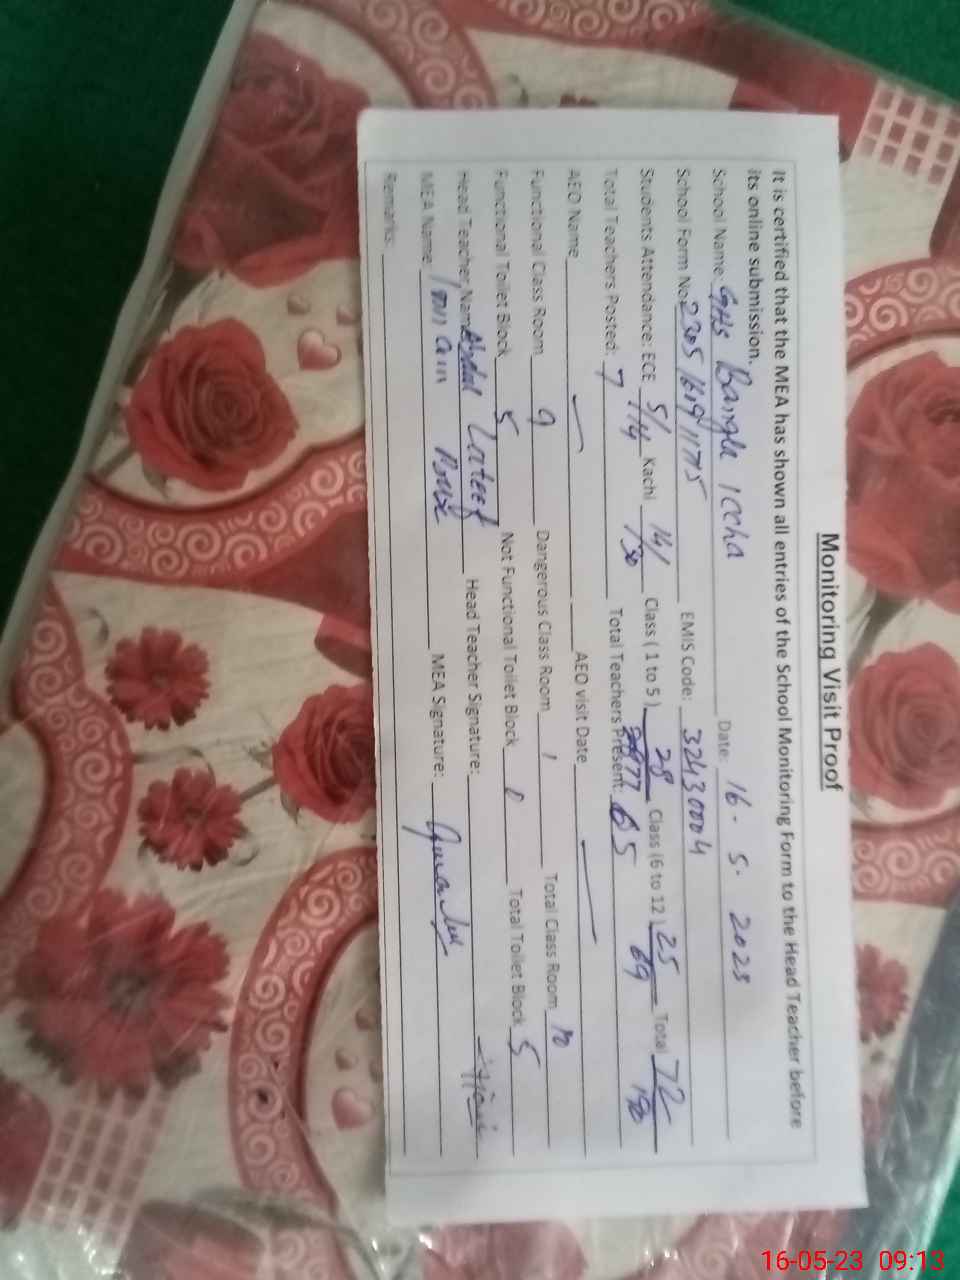 Monitoring Visit Proof
It is certified that the MEA has shown all entries of the School Monitoring Form to the Head Teacher before
its online submission.
School Name: GHS Bangla Iccha Date: 16-5-2023
School Form No: EMIS Code: 32430004
Students Attendance: ECE 5/14 Kachi 14/30 Class ( 1 to 5 ) 28 Class (6 to 12 ) 25/69 Total 72
Total Teachers Posted: 7 Total Teachers Present:
AEO Name — AEO visit Date —
Functional Class Room 9 Dangerous Class Room 1 Total Class Room 10
Functional Toilet Block 5 Not Functional Toilet Block 0 Total Toilet Block 5
Head Teacher Name Abdul Lateef Head Teacher Signature:
MEA Name MEA Signature:
Remarks:
16-05-23 09:13